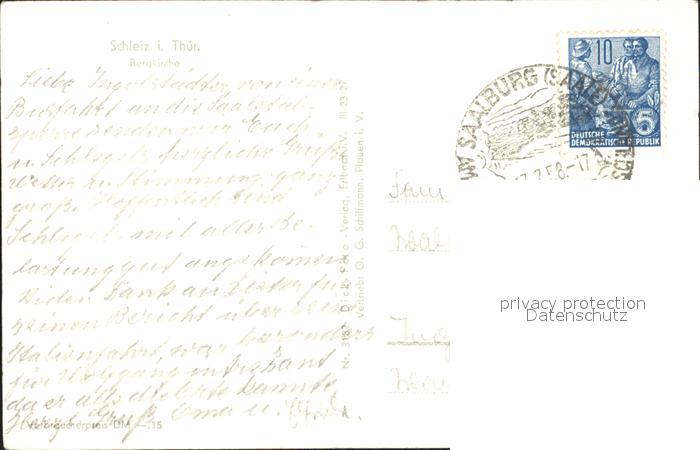 Schleiz i. Thür.
Bergkirche
Liebe Ingolstädter, von einer
Busfahrt an die Saaletal-
sperre senden wir Euch
u. Schlegels herzliche Grüße
Wetter u. Stimmung ganz
groß. Hoffentlich sind
Schlegels mit aller Be-
lastung gut angekommen
Vielen Dank an Dieter für
seinen Bericht über seine
Italienfahrt, war besonders
für Wolfgang interessant
da er alle die Orte kannte
Herzl. Grüße Oma u.
Verbraucherpreis DM —.15
Nr. 3187 Dick-Foto-Verlag, Erlbach i. V. III-23-27
Vertrieb: O. G. Schiffmann, Plauen i. V.
SAALBURG (SAALE)
58.-17
10
5
DEUTSCHE
DEMOKRATISCHE REPUBLIK
Fam
Ing
privacy protection
Datenschutz